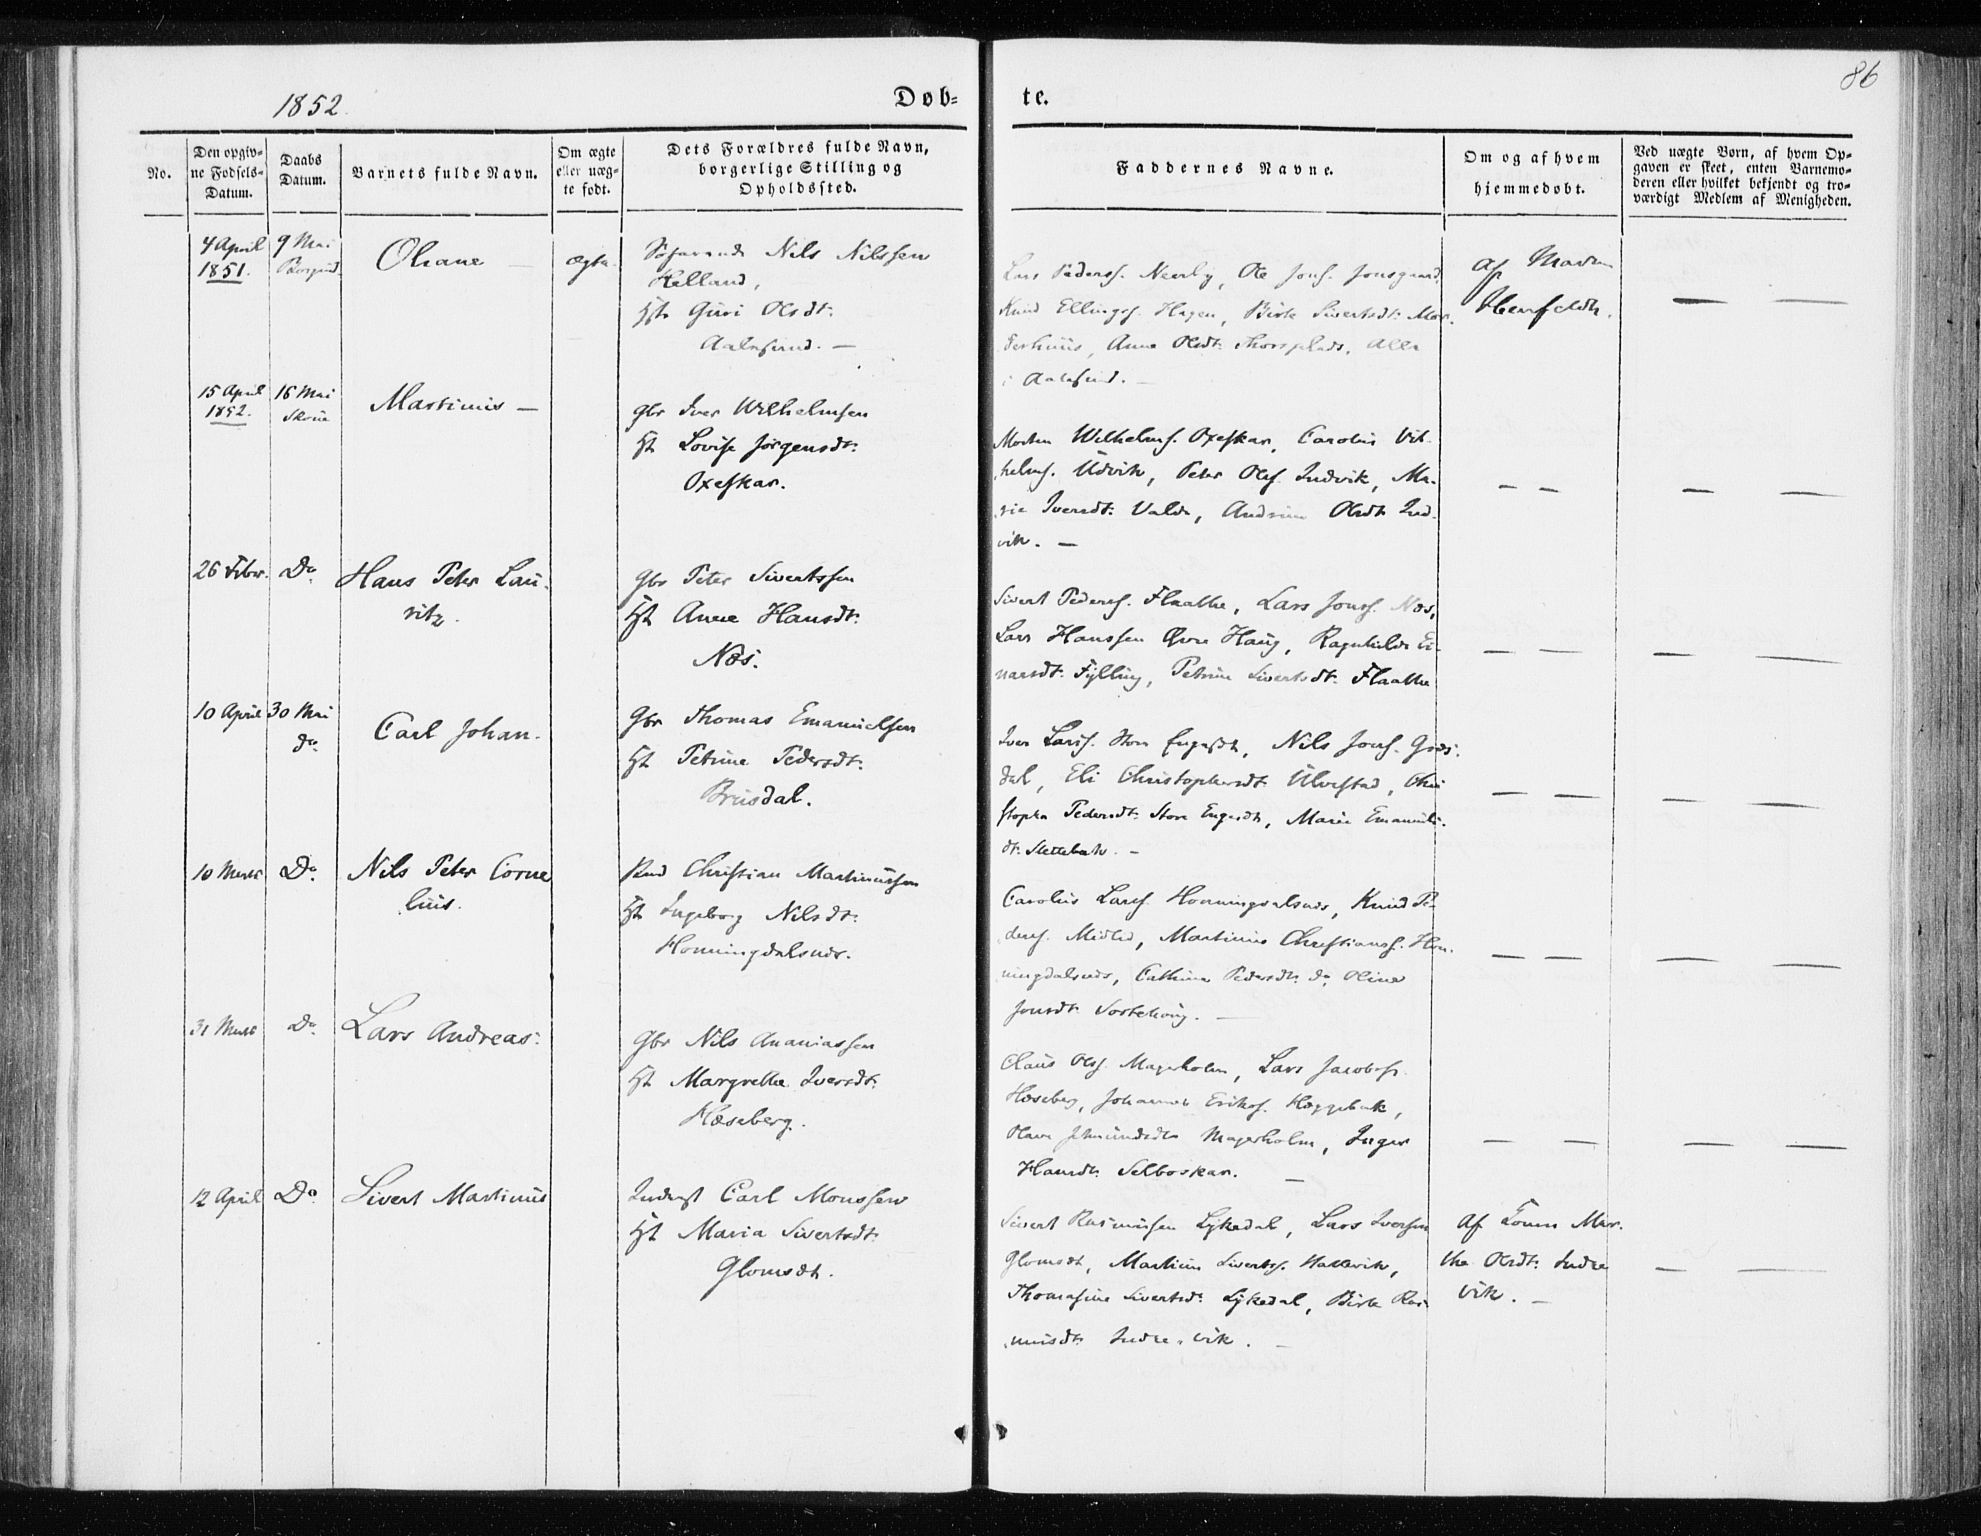 1852.
Døb=
te.
86
No.
Den opgiv=
ne Fødsels=
Datum.
Daabs
Datum.
Barnets fulde Navn.
Om ægte
eller uæg=
te født.
Dets Forældres fulde Navn,
borgerlige Stilling og
Opholdssted.
Faddernes Navne.
Om og af hvem
hjemmedøbt.
Ved uægte Børn, af hvem Op=
gaven er skeet, enten Barnemo=
deren eller hvilket bekjendt og tro=
værdigt Medlem af Menigheden.
4 April
1851.
9 Mai
Borgund
Oliane —
ægte
Søfarende Nils Nilssen
Helland,
Hst Guri Olsdt:
Aalesund. —
Lars Peders. Nerby, Ole Jons. Jonsgaard,
Knud Ellings. Hagen, Birte Sivertsdt:
Anne Olsdt: Thorsplads, Alle
i Aalesund. —
Af Madm
15 April
1852.
16 Mai
Skoue
Martinus —
Gbr Iver Wilhelmsen
Hst Lovise Jørgensdt:
Oxeskar.
Morten Wilhelms. Oxeskar, Carolus Vil-
helms. Udvik, Peter Ols. Indvik, Ma-
rie Iversdt: Valde, Andrine Olsdt Ind-
vik. —
26 Febr.
Do
Hans Peter Lau-
ritz.
Gbr Peter Sivertssen
Hst Anne Hansdt:
Næs.
Sivert Peders. Flaathe, Lars Jons. Næs,
Lars Hanssen Øvre Haug, Ragnhilde Ei-
narsdt: Fylling, Petrine Sivertsdt: Flaathe
10 April
30 Mai
do
Carl Johan.
Gbr Thomas Emanuelsen
Hst Petrine Pedersdt:
Brusdal.
Iver Lars. Store Engesdt, Nils Jons.
dal, Eli Christophersdt Ulvestad, Chri
stopha Pedersdt: Store Engesdt, Marie Emanuels-
dt: Slettebak. —
10 Marts
Do
Nils Peter Corne
lius.
Rmd Christian Martinussen
Hst Ingeborg Nilsdt:
Honningdalsnes.
Carolus Lars. Honningdalsnes, Knud Pe-
ders. Midlid, Martinus Christians. Hon-
ningdalsnes, Cathrine Pedersdt: do Oline
Jonsdt: Sortehoug. —
31 Marts
Do
Lars Andreas.
Gbr Nils Ananiassen
Hst Margrethe Iversdt:
Hæseberg.
Claus Ols. Magerholm, Lars Jacobs.
Hæseberg, Johannes Eriks. Hæggebak,
Magerholm, Inger
Hansdt: Selboskar. —
12 April
Do
Sivert Martinus
Inderst Carl Monssen
Hst Maria Sivertsdt:
Glomsdt.
Sivert Rasmussen Lykedal, Lars Iversen
Glomsdt, Martinus Siverts. Hatlevik,
Thomasine Sivertsd: Lykedal, Birte Ras-
musdt: Indre-vik. —
Af Konen Mar-
the Olsdt: Indre
vik. —